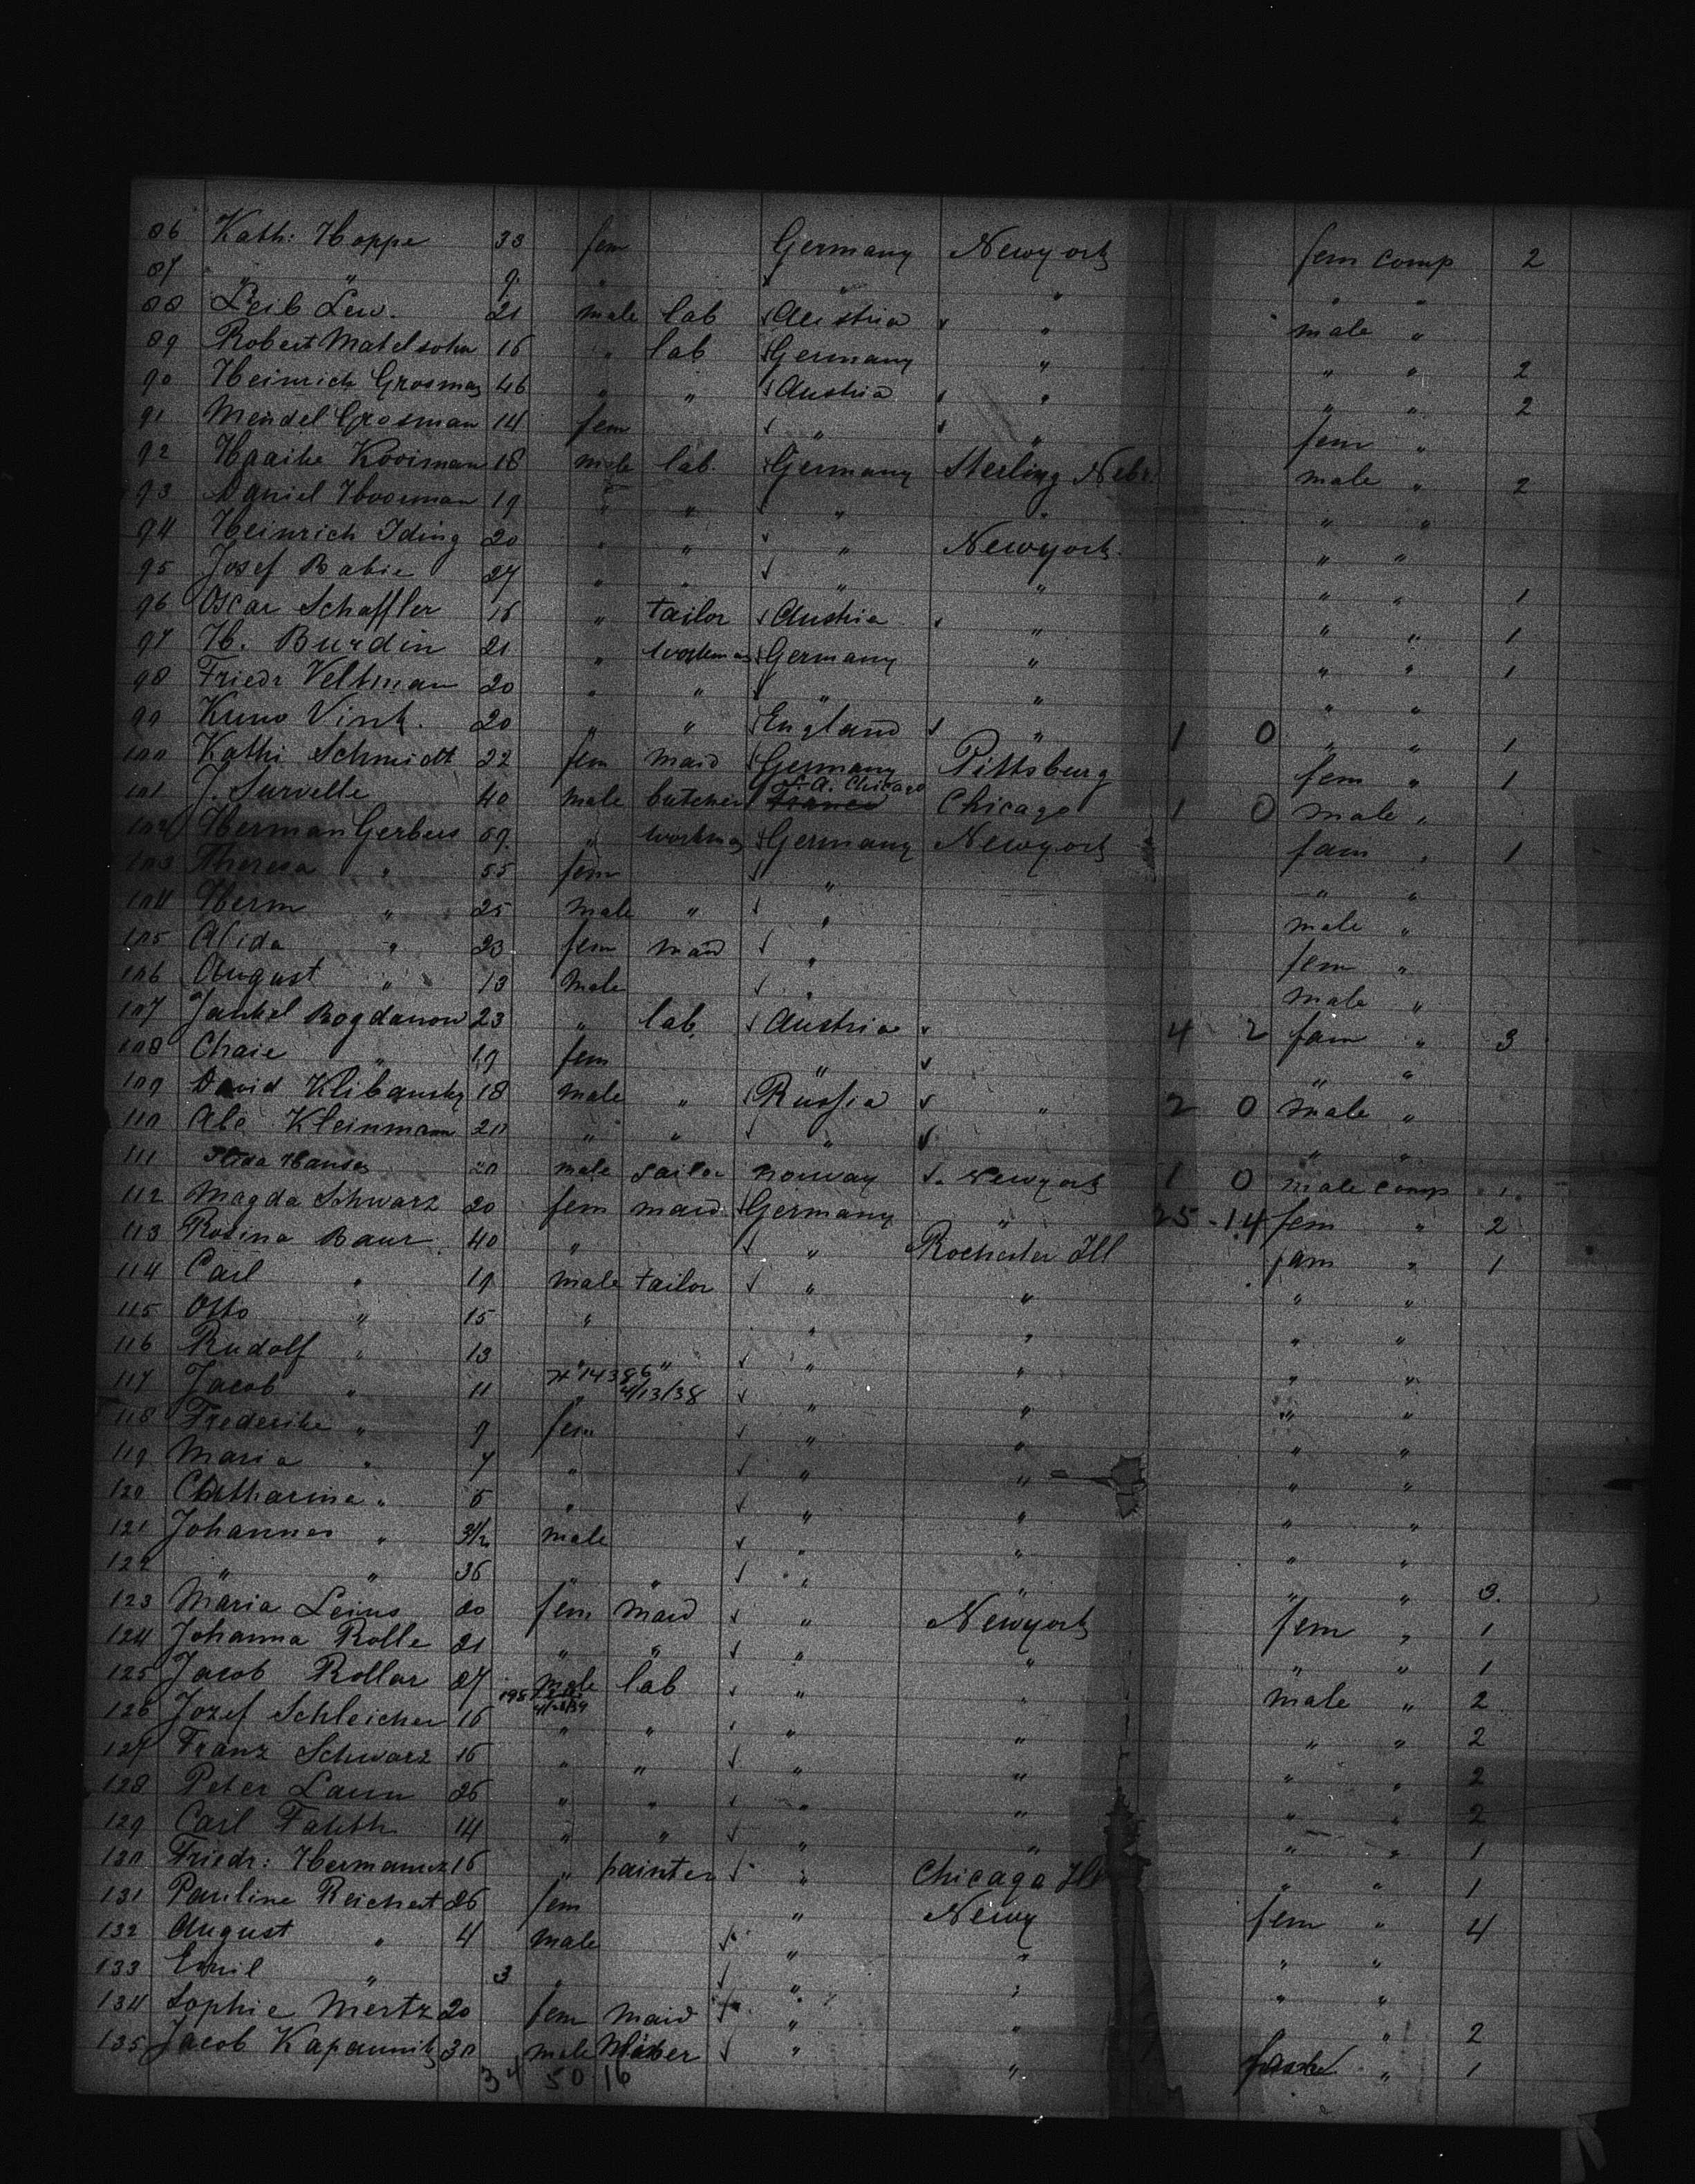 86 Kath: Hoppe 33 fem Germany Newyork fem comp 2
87 " " 9 " " " " "
88 Leib Lew. 21 male lab Austria " male "
89 Robert Matelsohn 16 " lab Germany " " " 2
90 Heinrich Grosman 46 " " Austria " " " 2
91 Mendel Grosman 14 fem " " fem "
92 Kooiman 18 male lab. Germany Sterling Nebr. male " 2
93 Daniel 19 " " " " " "
94 Heinrich Iding 20 " " " Newyork " "
95 Josef Babie 27 " " " " " " 1
96 Oscar Schaffler 16 " tailor Austria " " " 1
97 H. Burdin 21 " workman Germany " " " 1
98 Friedr Veltman 20 " " " " " "
99 Kuno Vink. 20 " " England " 1 0 " " 1
100 Kathi Schmidt 22 fem maid Germany Pittsburg fem " 1
101 J. Survelle 40 male butcher France Chicago 1 0 male "
102 Herman Gerbers 59 " workman Germany Newyork fam " 1
103 Theresa " 55 fem " " "
104 Herm " 25 male " " male "
105 Alida " 23 fem maid " fem "
106 August " 13 male " male "
107 Jankel Bogdanow 23 " lab. Austria 4 2 fam " 3
108 Chaie " 19 fem " " "
109 David Klibansky 18 male " Russia " 2 0 male "
110 Abe Kleinmann 20 " " " " "
111 20 male sailor Norway Newyork 1 0 male comp 1
112 Magda Schwarz 20 fem maid Germany " 25 - 14 fem " 2
113 Rosina Baur 40 " " Rochester Ill fam " 1
114 Carl " 19 male tailor " " " "
115 Otto " 15 " " " " "
116 Rudolf " 13 " " " " " "
# 14386
117 Jacob " 11 " 4/13/38 " " " "
118 Frederike " 9 fem " " " "
119 Maria " 7 " " " " "
120 Chatharina " 5 " " " " "
121 Johannes " 3½ male " " " "
122 " " 36 " " " " " " 3.
123 Maria Leins 20 fem maid " Newyork fem " 1
124 Johanna Rolle 21 " " " " " " 1
125 Jacob Rollar 27 male lab " " male " 2
126 Jozef Schleicher 16 " " " " " " 2
127 Franz Schwarz 16 " " " " " " 2
128 Peter Laun 26 " " " " " " 2
129 Carl 14 " " " " " " 1
130 Friedr: Hermannes 16 " painter " Chicago Ill " " 1
131 Pauline Reichert 26 fem " Newy fem " 4
132 August " 4 male " " " "
133 Emil " 3 " " " " "
134 Sophie Mertz 20 fem maid " " " 2
135 Jacob Kapaunik 30 male " " " 1
34 50 16